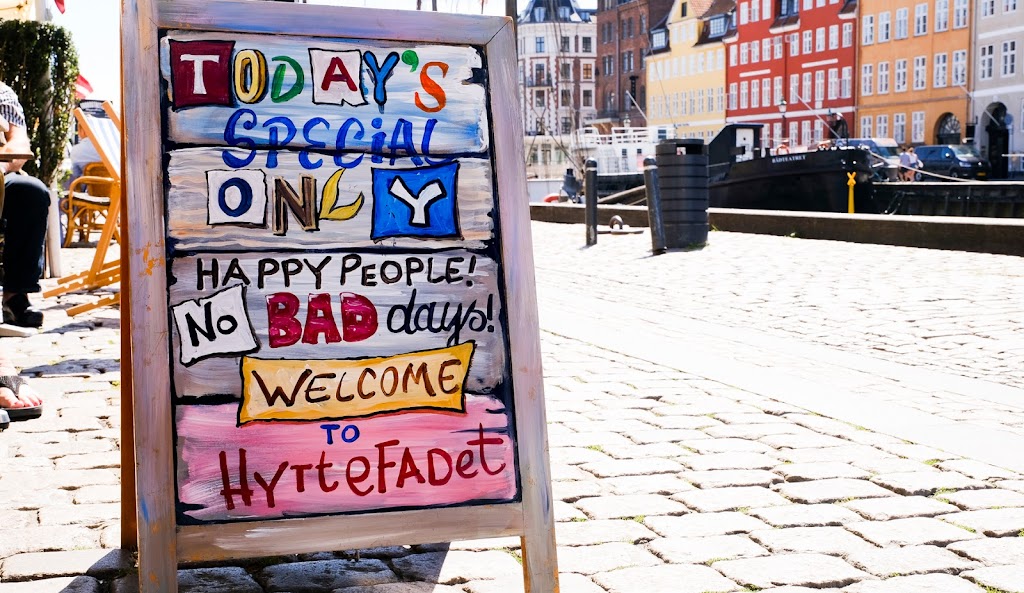 TODAY'S
SPECiAL
ONLY
HAPPY PEOPLE!
No BAD days!
WELCOME
TO
HYTTEFADet
BÅDTEATRET